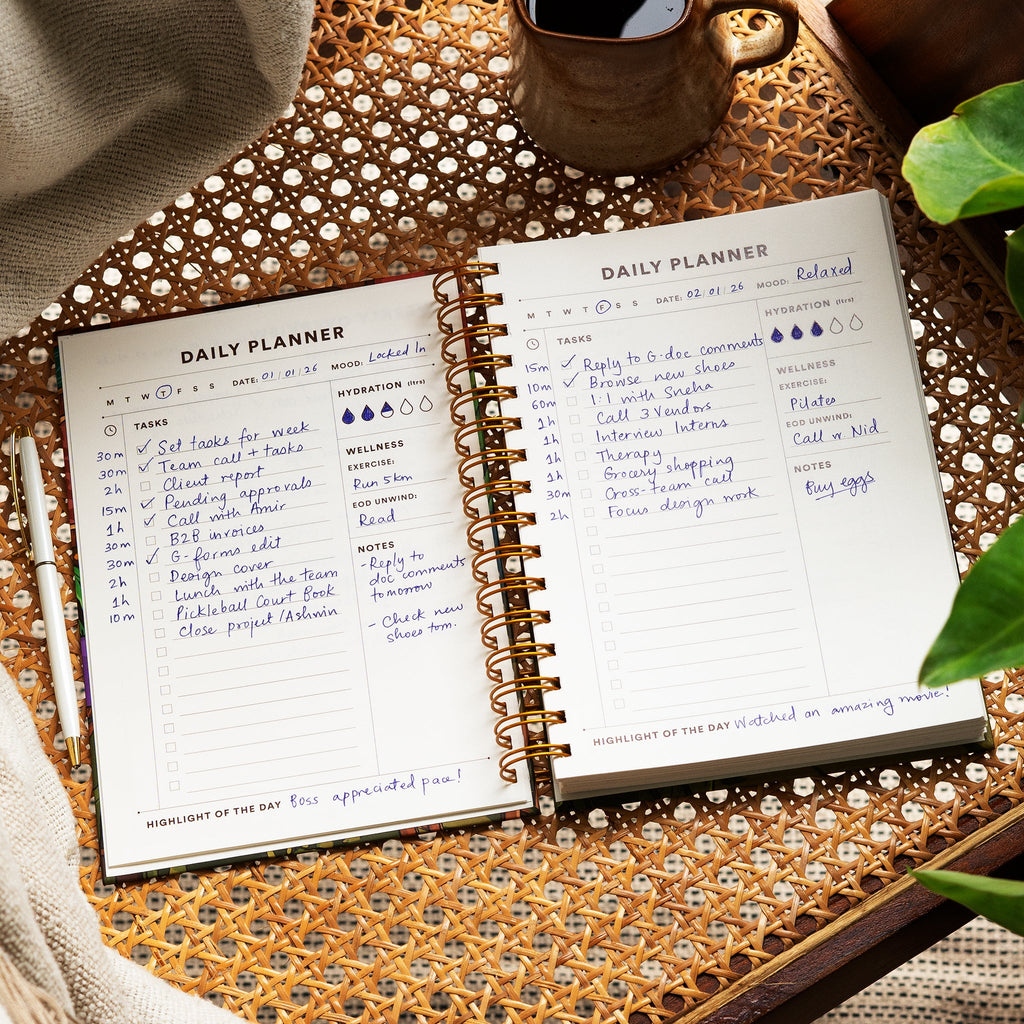 DAILY PLANNER
M T W T F S S DATE: 01/01/26 MOOD: Locked In
TASKS
30m Set tasks for week
30m Team call + tasks
2h Client report
15m Pending approvals
1h Call with Amir
30m B2B invoices
30m G-forms edit
2h Design cover
1h Lunch with the team
10m Pickleball Court Book
Close project/Ashwin
HYDRATION (ltrs)
WELLNESS
EXERCISE:
Run 5km
EOD UNWIND:
Read
NOTES
- Reply to
doc comments
tomorrow
- Check new
shoes tom.
HIGHLIGHT OF THE DAY Boss appreciated pace!
DAILY PLANNER
M T W T F S S DATE: 02/01/26 MOOD: Relaxed
TASKS
15m Reply to G-doc comments
10m Browse new shoes
60m 1:1 with Sneha
1h Call 3 Vendors
1h Interview Interns
1h Therapy
1h Grocery shopping
30m Cross-team call
2h Focus design work
HYDRATION (ltrs)
WELLNESS
EXERCISE:
Pilates
EOD UNWIND:
Call w Nid
NOTES
Buy eggs
HIGHLIGHT OF THE DAY Watched an amazing movie!